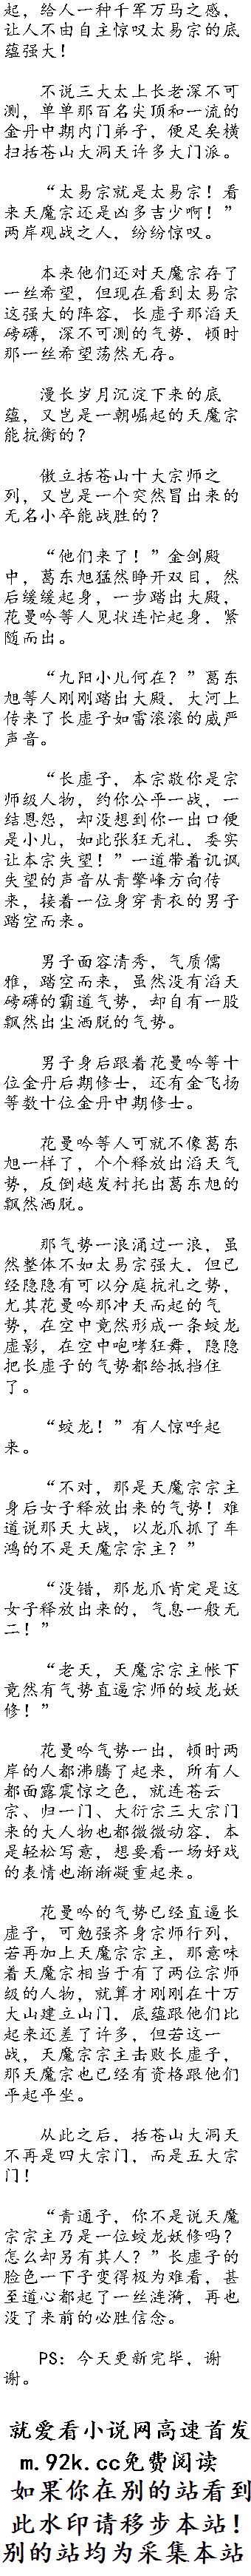 起，给人一种千军万马之感，
让人不由自主惊叹太易宗的底
蕴强大！
不说三大太上长老深不可
测，单单那百名尖顶和一流的
金丹中期内门弟子，便足矣横
扫括苍山大洞天许多大门派。
“太易宗就是太易宗！看
来天魔宗还是凶多吉少啊！”
两岸观战之人，纷纷惊叹。
本来他们还对天魔宗存了
一丝希望，但现在看到太易宗
这强大的阵容，长虚子那滔天
磅礴，深不可测的气势，顿时
那一丝希望荡然无存。
漫长岁月沉淀下来的底
蕴，又岂是一朝崛起的天魔宗
能抗衡的？
傲立括苍山十大宗师之
列，又岂是一个突然冒出来的
无名小卒能战胜的？
“他们来了！”金剑殿
中，葛东旭猛然睁开双目，然
后缓缓起身，一步踏出大殿，
花曼吟等人见状连忙起身，紧
随而出。
“九阳小儿何在？”葛东
旭等人刚刚踏出大殿，大河上
传来了长虚子如雷滚滚的威严
声音。
“长虚子，本宗敬你是宗
师级人物，约你公平一战，一
结恩怨，却没想到你一出口便
是小儿，如此张狂无礼，委实
让本宗失望！”一道带着讥讽
失望的声音从青擎峰方向传
来，接着一位身穿青衣的男子
踏空而来。
男子面容清秀，气质儒
雅，踏空而来，虽然没有滔天
磅礴的霸道气势，却自有一股
飘然出尘洒脱的气势。
男子身后跟着花曼吟等十
位金丹后期修士，还有金飞扬
等数十位金丹中期修士。
花曼吟等人可就不像葛东
旭一样了，个个释放出滔天气
势，反倒越发衬托出葛东旭的
飘然洒脱。
那气势一浪涌过一浪，虽
然整体不如太易宗强大，但已
经隐隐有可以分庭抗礼之势，
尤其花曼吟那冲天而起的气
势，在空中竟然形成一条蛟龙
虚影，在空中咆哮狂舞，隐隐
把长虚子的气势都给抵挡住
了。
“蛟龙！”有人惊呼起
来。
“不对，那是天魔宗宗主
身后女子释放出来的气势！难
道说那天大战，以龙爪抓了车
鸿的不是天魔宗宗主？”
“没错，那龙爪肯定是这
女子释放出来的，气息一般无
二！”
“老天，天魔宗宗主帐下
竟然有气势直逼宗师的蛟龙妖
修！”
花曼吟气势一出，顿时两
岸的人都沸腾了起来，所有人
都面露震惊之色，就连苍云
宗、归一门、大衍宗三大宗门
来的大人物也都微微动容，本
是轻松写意，想要看一场好戏
的表情也渐渐凝重起来。
花曼吟的气势已经直逼长
虚子，可勉强齐身宗师行列，
若再加上天魔宗宗主，那意味
着天魔宗相当于有了两位宗师
级的人物，就算才刚刚在十万
大山建立山门，底蕴跟他们比
起来还差了许多，但若这一
战，天魔宗宗主击败长虚子，
那天魔宗也已经有资格跟他们
平起平坐。
从此之后，括苍山大洞天
不再是四大宗门，而是五大宗
门！
“青通子，你不是说天魔
宗宗主乃是一位蛟龙妖修吗？
怎么却另有其人？”长虚子的
脸色一下子变得极为难看，甚
至道心都起了一丝涟漪，再也
没了来前的必胜信念。
PS：今天更新完毕，谢
谢。
就爱看小说网高速首发
m.92k.cc免费阅读
如果你在别的站看到
此水印请移步本站！
别的站均为采集本站